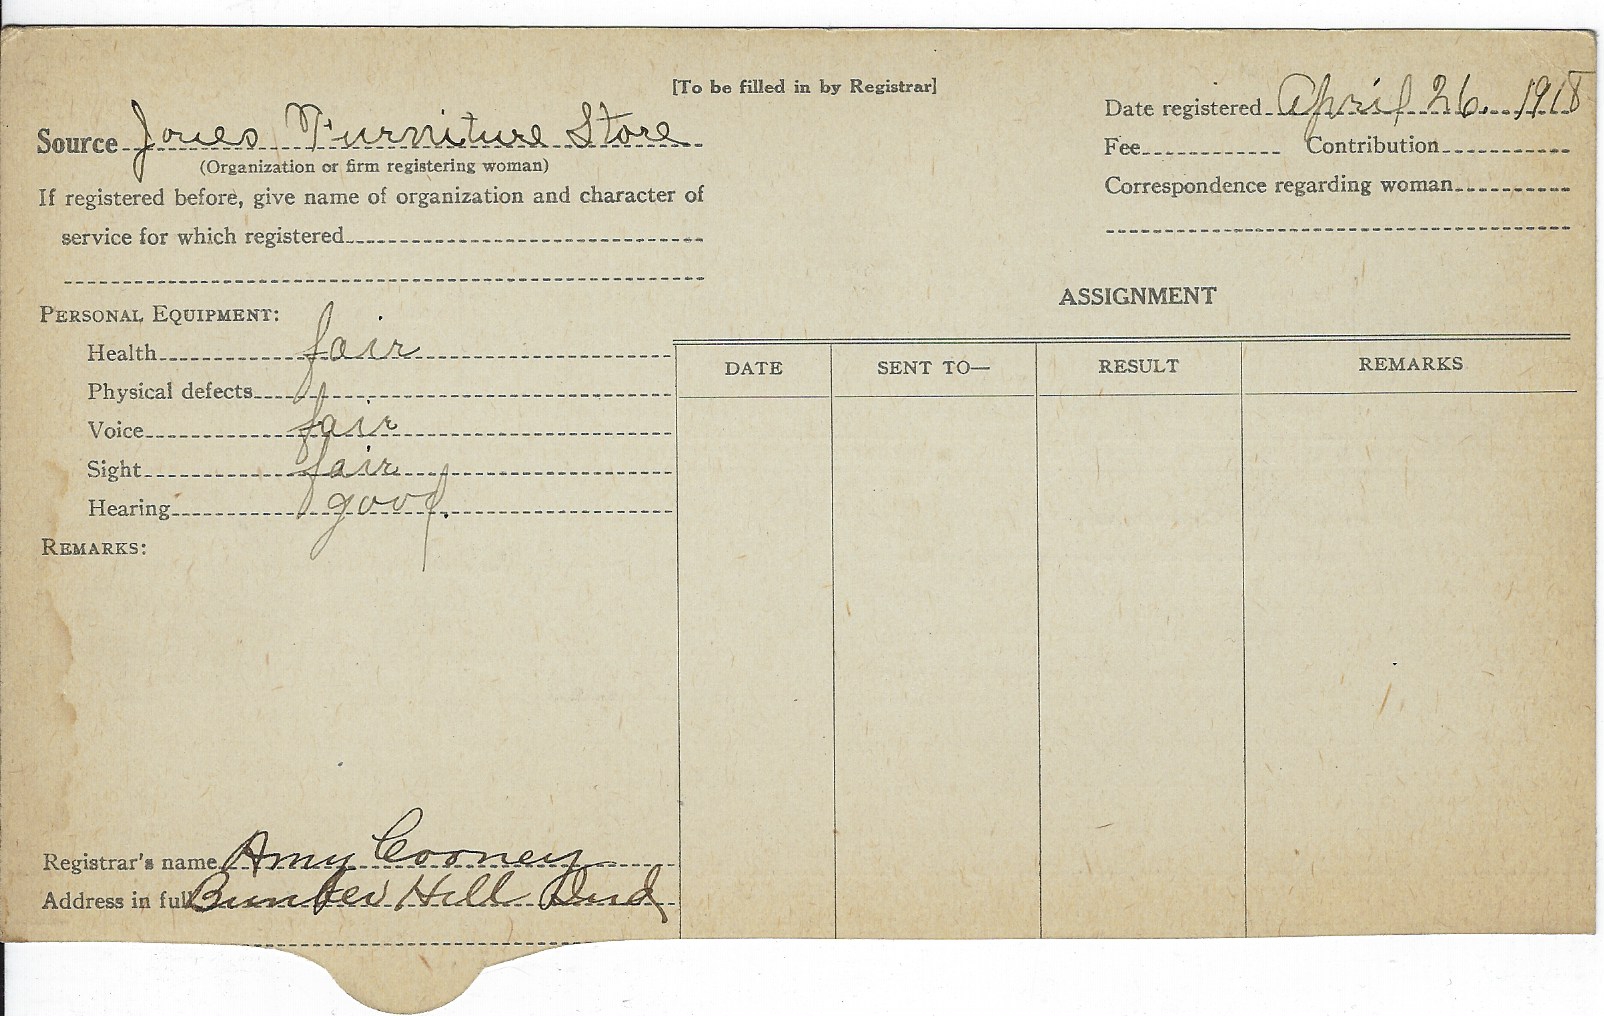 [To be filled in by Registrar]
Source Jones Furniture Store
(Organization or firm registering woman)
If registered before, give name of organization and character of
service for which registered
Date registered April 26. 1918
Fee Contribution
Correspondence regarding woman
PERSONAL EQUIPMENT:
Health fair
Physical defects
Voice fair
Sight fair
Hearing good.
REMARKS:
ASSIGNMENT
DATE SENT TO— RESULT REMARKS
Registrar's name Amy Cooney
Address in full Bunker Hill Ind